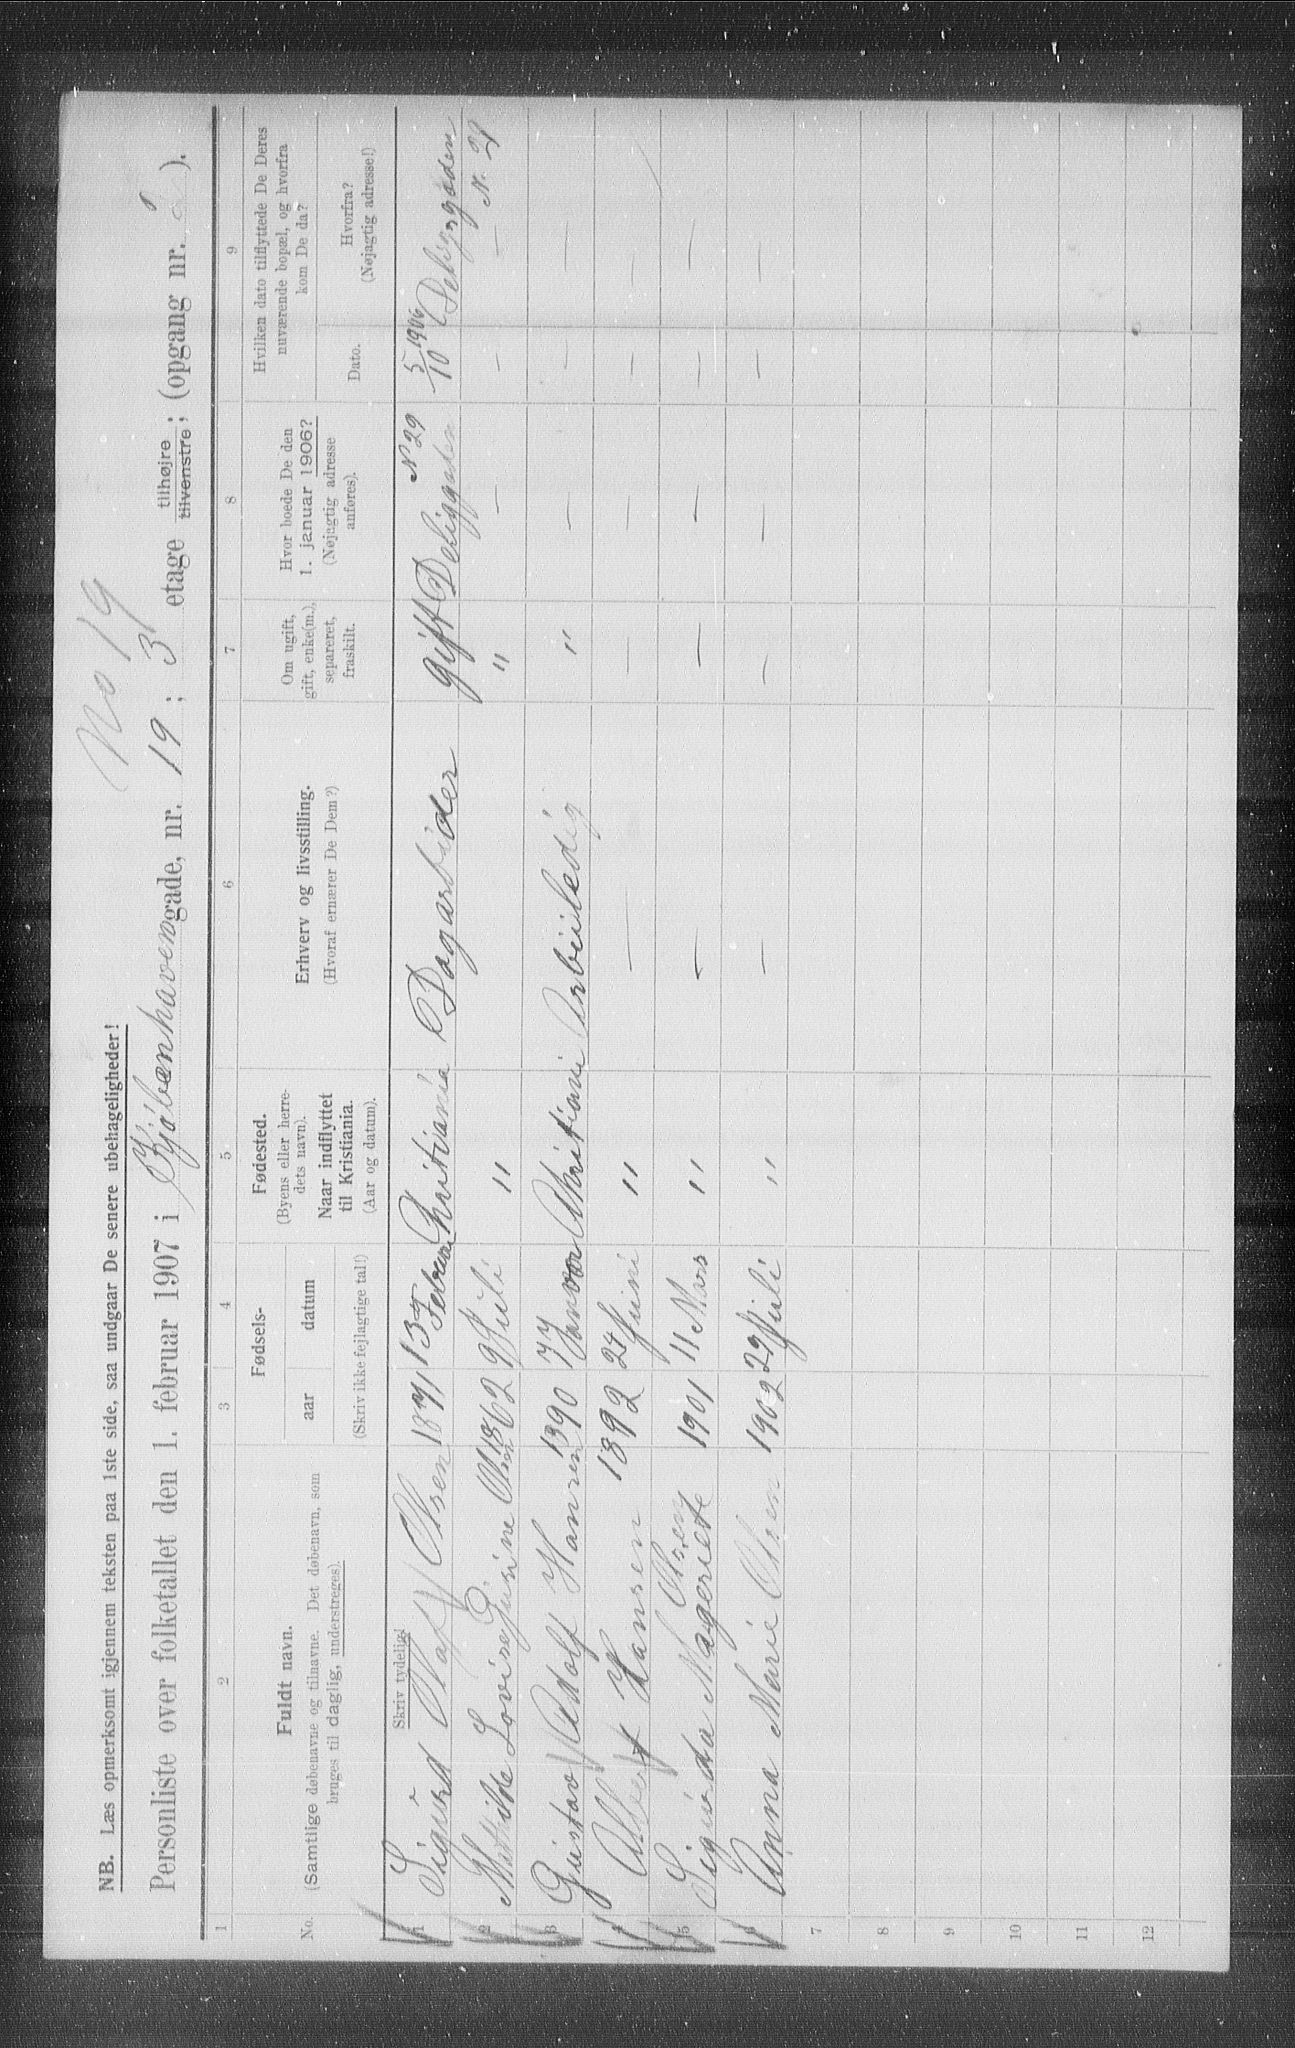 No 19
NB. Læs opmerksomt igjennem teksten paa 1ste side, saa undgaar De senere ubehageligheder!
Personliste over folketallet den 1. februar 1907 i Kjøbenhavengade, nr. 19 ; 3 etage tilhøjre tilvenstre ; (opgang nr. ).
1 2 3 4 5 6 7 8 9
No.
Fuldt navn.
(Samtlige døbenavne og tilnavne. Det døbenavn, som
bruges til daglig, understreges).
Skriv tydelig!
Fødsels-
aar datum
(Skriv ikke fejlagtige tal!)
Fødested.
(Byens eller herre-
dets navn).
Naar indflyttet
til Kristiania.
(Aar og datum).
Erhverv og livsstilling.
(Hvoraf ernærer De Dem?)
Om ugift,
gift, enke(m.),
separeret,
fraskilt.
Hvor boede De den
1. januar 1906?
(Nøjagtig adresse
anføres).
Hvilken dato tilflyttede De Deres
nuværende bopæl, og hvorfra
kom De da?
Dato.
Hvorfra?
(Nøjagtig adresse!)
1 Sigurd Olaf Olsen 1871 13 Februar Christiania Dagarbider gift Deliggaden N 29 5/10 1906
2 Mathilde Lovise Olsen 1862 9 Juli " " — — — N.
3 Gustav Adolf Hansen 1890 Januar Khristiani Arbeiledig " — — —
4 Albert Hansen 1892 24 Juni " — — — — —
5 Signida Magerete Olsen 1901 11 Mars " — — — — —
6 Anna Marie Olsen 1902 29 Juli " — — — — —
7
8
9
10
11
12